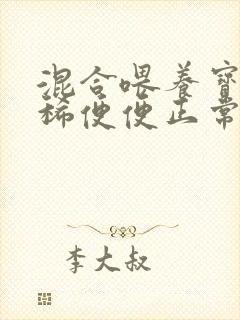 混合喂养宝
稀便便正常
李大叔